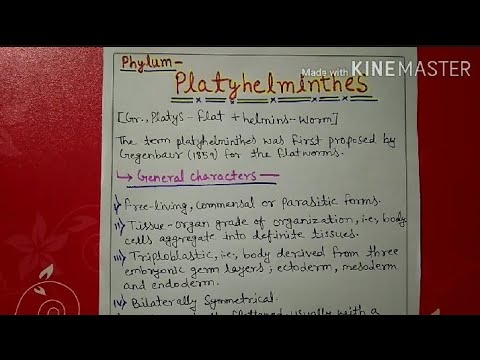 Phylum-
Platyhelminthes
Made with KINEMASTER
[Gr., Platys - flat + helmins - worm]
The term platyhelminthes was first proposed by
Gegenbaur (1859) for the flatworms.
→ General characters —
i) Free-living, commensal or parasitic forms.
ii) Tissue-organ grade of organization, i.e., body
cells aggregate into definite tissues.
iii) Triploblastic, i.e., body derived from three
embryonic germ layers; ectoderm, mesoderm
and endoderm.
iv) Bilaterally symmetrical.
flattened usually with a